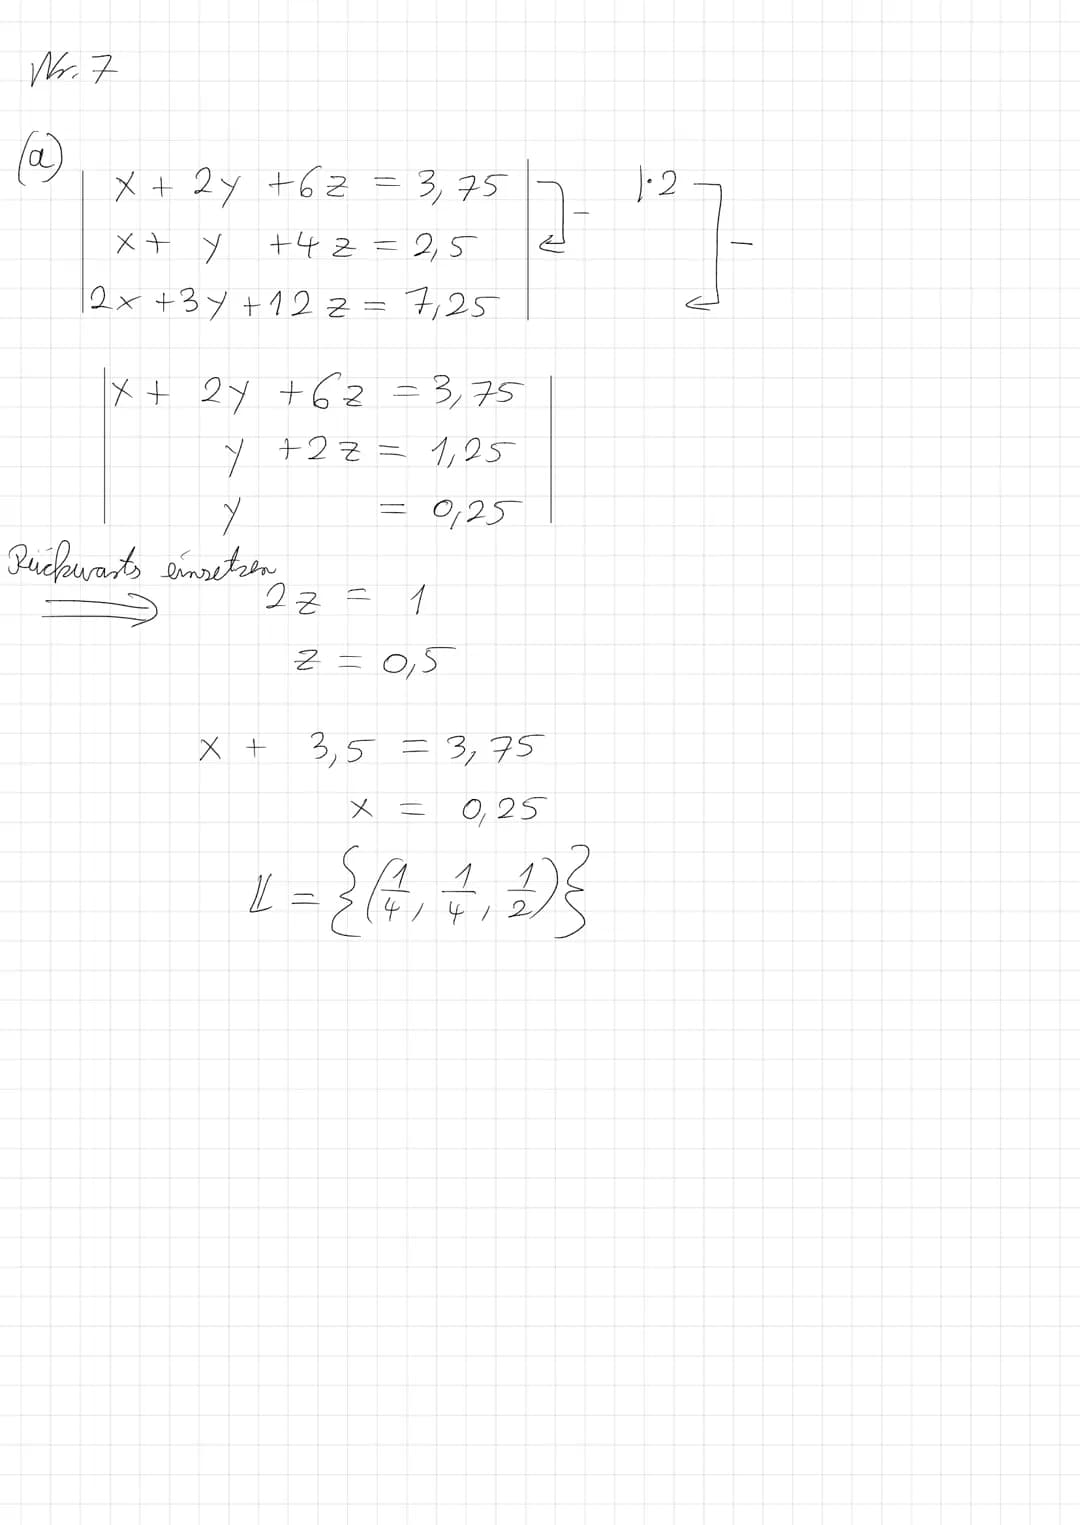 Nr. 7
(a)
x + 2y + 6z = 3,75 - |·2
x + y + 4z = 2,5 -
2x + 3y + 12z = 7,25
x + 2y + 6z = 3,75
y + 2z = 1,25
y = 0,25
Rückwarts einsetzen
⟹ 2z = 1
z = 0,5
x + 3,5 = 3,75
x = 0,25
𝕃 = {(1/4, 1/4, 1/2)}